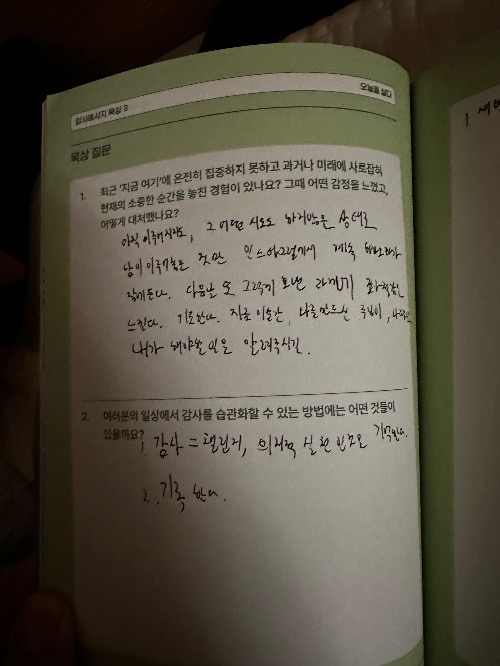 감사메시지 묵상 3
오늘을 살다
묵상 질문
1. 최근 '지금 여기'에 온전히 집중하지 못하고 과거나 미래에 사로잡혀
현재의 소중한 순간을 놓친 경험이 있나요? 그때 어떤 감정을 느꼈고,
어떻게 대처했나요?
아직 이루어지지도, 그 어떤 시도도 하지않은 상태로
남이 이루기놓은 것만 인스타그램에서 계속
다음날 또 그렇게 보낸
느낀다. 기도한다. 지금 이순간, 나를 만드신 주님이,
내가 해야할 일을 알려주시길.
2. 여러분의 일상에서 감사를 습관화할 수 있는 방법에는 어떤 것들이
있을까요?
1. 감사 = 챌린지, 의지적 실천 기억한다.
2. 기록 한다.
1.